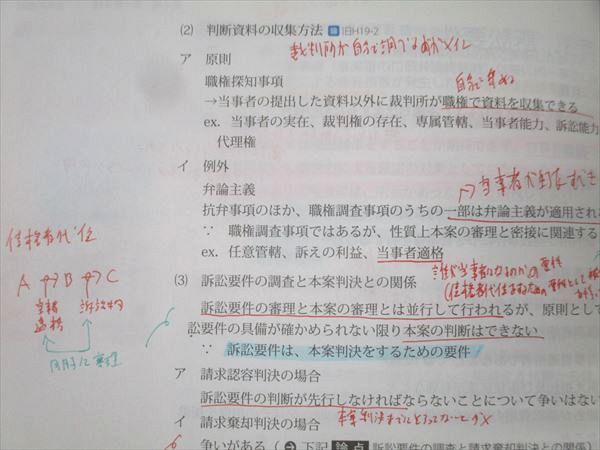 (2) 判断資料の収集方法 旧H19-2
裁判所が自分で調べるのがメイン
ア 原則
職権探知事項
自分で集める
→当事者の提出した資料以外に裁判所が職権で資料を収集できる
ex. 当事者の実在、裁判権の存在、専属管轄、当事者能力、訴訟能力
代理権
イ 例外
弁論主義
→当事者が
抗弁事項のほか、職権調査事項のうちの一部は弁論主義が適用され
∵ 職権調査事項ではあるが、性質上本案の審理と密接に関連する
ex. 任意管轄、訴えの利益、当事者適格
誰が当事者になるかの要件
(3) 訴訟要件の調査と本案判決との関係
訴訟要件の審理と本案の審理とは並行して行われるが、原則として
訟要件の具備が確かめられない限り本案の判断はできない
∵ 訴訟要件は、本案判決をするための要件
ア 請求認容判決の場合
訴訟要件の判断が先行しなければならないことについて争いはない
イ 請求棄却判決の場合
争いがある(→下記 論点 訴訟要件の調査と請求棄却判決との関係)
債権者代位
A → B → C
当事者 訴訟物
適格
同時に審理